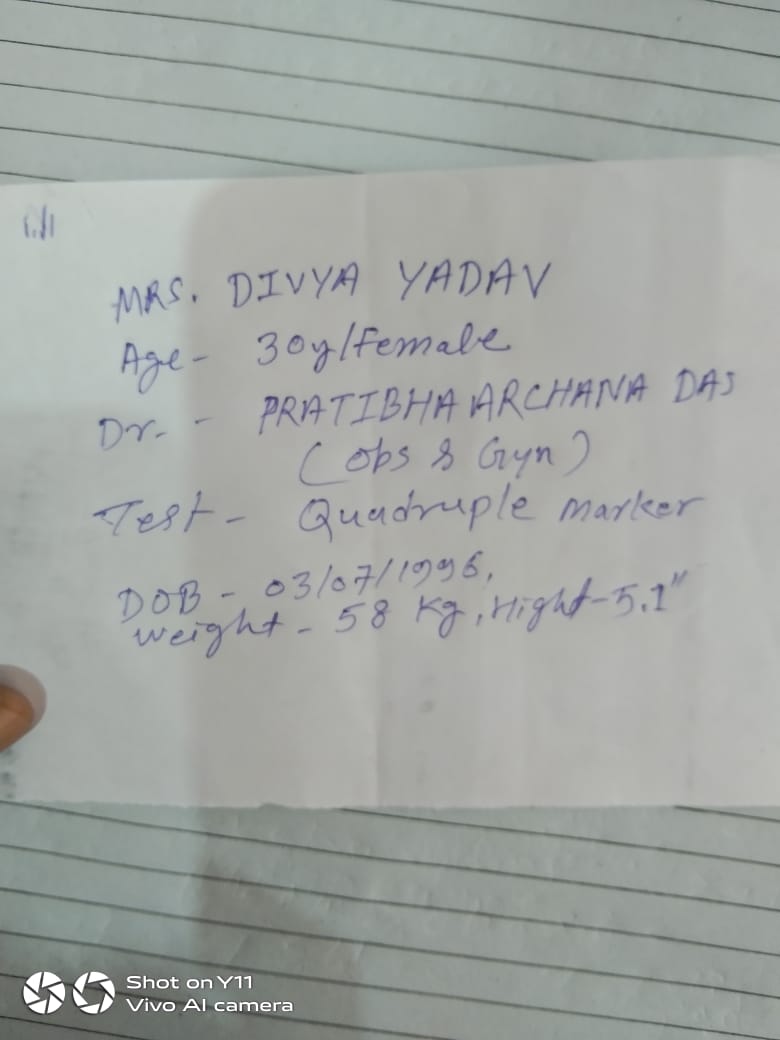 MRS. DIVYA YADAV
Age - 30y/Female
Dr. - PRATIBHA ARCHANA DAS
(Obs & Gyn)
Test - Quadruple marker
DOB - 03/07/1996,
weight - 58 kg, Hight - 5.1"
Shot on Y11
Vivo AI camera